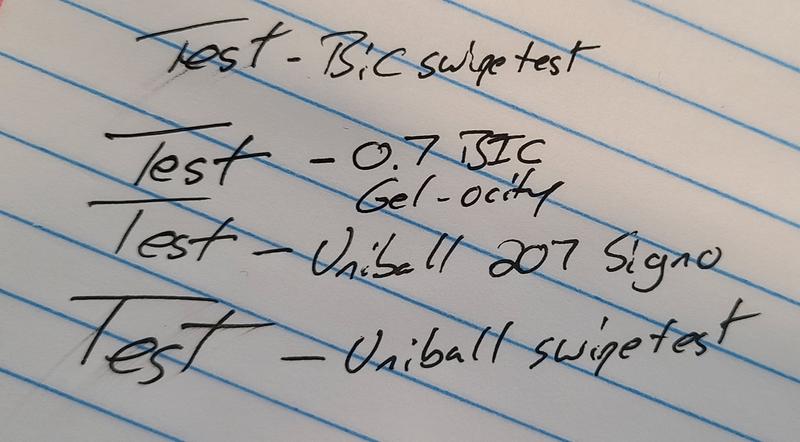 Test - BiC swipe test
Test - 0.7 BIC
Gel-ocity
Test - Uniball 207 Signo
Test - Uniball swipe test